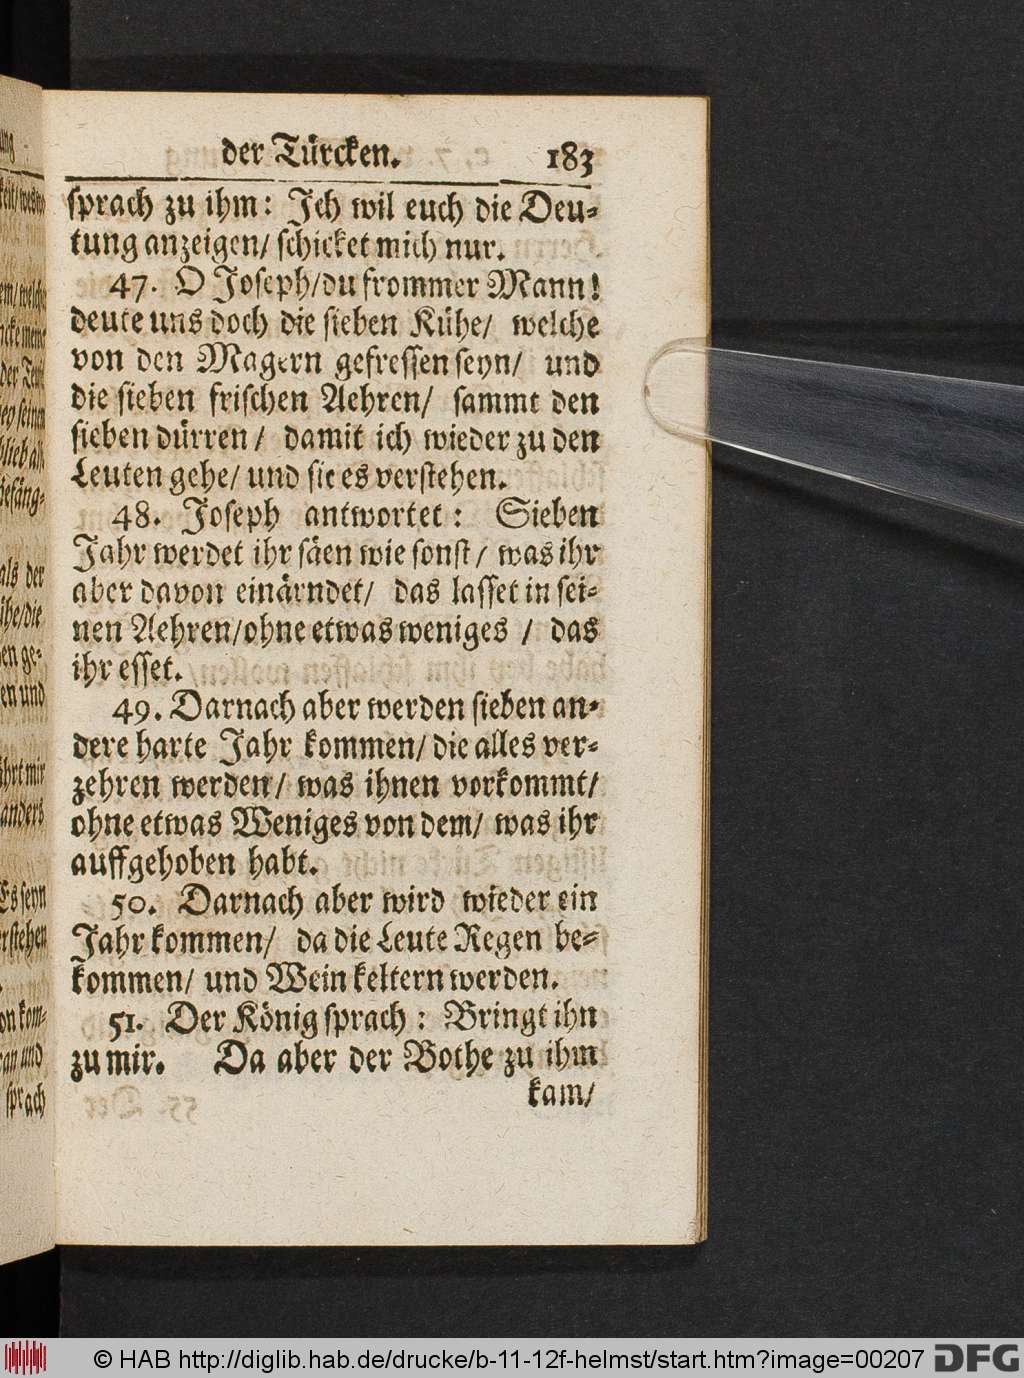 der Türcken. 183
sprach zu ihm: Ich wil euch die Deu-
tung anzeigen/ schicket mich nur.
47. O Joseph/du frommer Mann!
deute uns doch die sieben Kühe/ welche
von den Magern gefressen seyn/ und
die sieben frischen Aehren/ sammt den
sieben dürren/ damit ich wieder zu den
Leuten gehe/ und sie es verstehen.
48. Joseph antwortet: Sieben
Jahr werdet ihr säen wie sonst/ was ihr
aber davon einärndet/ das lasset in sei-
nen Aehren/ohne etwas weniges / das
ihr esset.
49. Darnach aber werden sieben an-
dere harte Jahr kommen/ die alles ver-
zehren werden/ was ihnen vorkommt/
ohne etwas Weniges von dem/ was ihr
auffgehoben habt.
50. Darnach aber wird wieder ein
Jahr kommen/ da die Leute Regen be-
kommen/ und Wein keltern werden.
51. Der König sprach: Bringt ihn
zu mir. Da aber der Bothe zu ihm
kam/
© HAB http://diglib.hab.de/drucke/b-11-12f-helmst/start.htm?image=00207 DFG